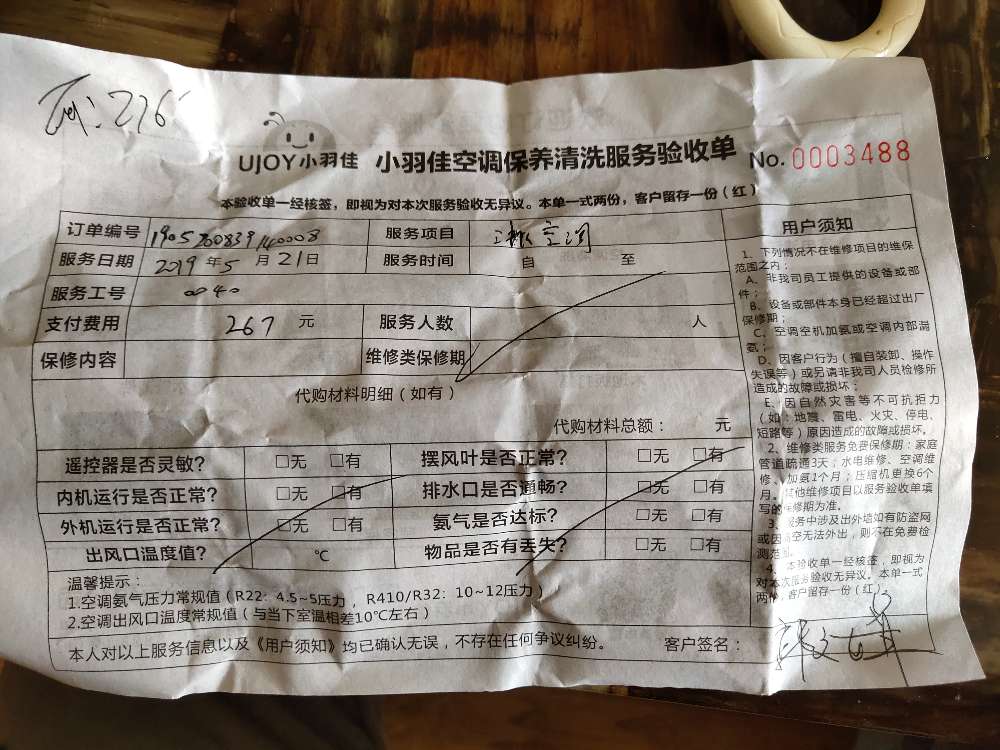 :276
UJOY小羽佳 小羽佳空调保养清洗服务验收单 No. 0003488
本验收单一经核签，即视为对本次服务验收无异议。本单一式两份，客户留存一份（红）
订单编号 1905200839140008 服务项目 空调
服务日期 2019 年 5 月 21 日 服务时间 自 至
服务工号 0040
支付费用 267 元 服务人数 人
保修内容 维修类保修期
代购材料明细（如有）
代购材料总额： 元
遥控器是否灵敏? □无 □有 摆风叶是否正常? □无 □有
内机运行是否正常? □无 □有 排水口是否通畅? □无 □有
外机运行是否正常? □无 □有 氨气是否达标? □无 □有
出风口温度值? ℃ 物品是否有丢失? □无 □有
温馨提示：
1.空调氨气压力常规值（R22：4.5~5压力，R410/R32：10~12压力）
2.空调出风口温度常规值（与当下室温相差10℃左右）
本人对以上服务信息以及《用户须知》均已确认无误，不存在任何争议纠纷。 客户签名：
用户须知
1、下列情况不在维修项目的维保
范围之内：
A、非我司员工提供的设备或部
件；
B、设备或部件本身已经超过出厂
保修期；
C、空调空机加氨或空调内部漏
氨；
D、因客户行为（擅自装卸、操作
失误等）或另请非我司人员检修所
造成的故障或损坏；
E、因自然灾害等不可抗拒力
（如：地震、雷电、火灾、停电、
短路等）原因造成的故障或损坏。
2、维修类服务免费保修期：家庭
管道疏通3天；水电维修、空调维
修、加氨1个月；压缩机更换6个
月。其他维修项目以服务验收单填
写的保修期为准。
3、服务中涉及出外墙如有防盗网
或因 空无法外出，则不在免费检
测范围。
4、本验收单一经核签，即视为
对本次服务验收无异议。本单一式
两份，客户留存一份（红）。